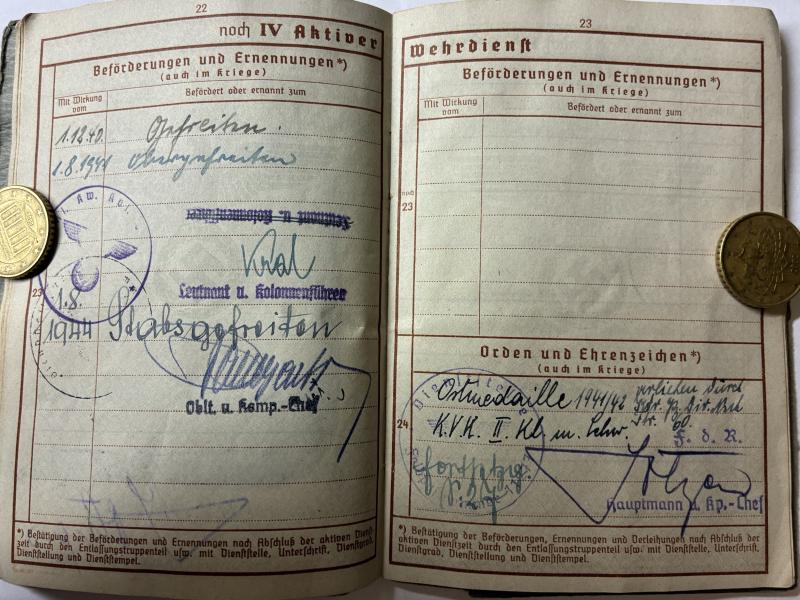 22
noch IV Aktiver
Beförderungen und Ernennungen*)
(auch im Kriege)
Mit Wirkung vom
Befördert oder ernannt zum
1.12.40. Gefreiten.
1.8.1941 Obergefreiten
Kw. Kol.
Kral
Leutnant u. Kolonnenführer
23
1.8.
1944 Stabsgefreiten
Oblt. u. Komp.-Chef
*) Bestätigung der Beförderungen und Ernennungen nach Abschluß der aktiven Dienst-
zeit durch den Entlassungstruppenteil usw. mit Dienststelle, Unterschrift, Dienstgrad,
Dienststellung und Dienststempel.
23
Wehrdienst
Beförderungen und Ernennungen*)
(auch im Kriege)
Mit Wirkung vom
Befördert oder ernannt zum
noch
23
Orden und Ehrenzeichen*)
(auch im Kriege)
Dienststelle
Ostmedaille 1941/42 verliehen durch
K.V.K. II. Kl. m. Schw.
24
F. d. R.
Hauptmann u. Kp.-Chef
*) Bestätigung der Beförderungen, Ernennungen und Verleihungen nach Abschluß der
aktiven Dienstzeit durch den Entlassungstruppenteil usw. mit Dienststelle, Unterschrift,
Dienstgrad, Dienststellung und Dienststempel.